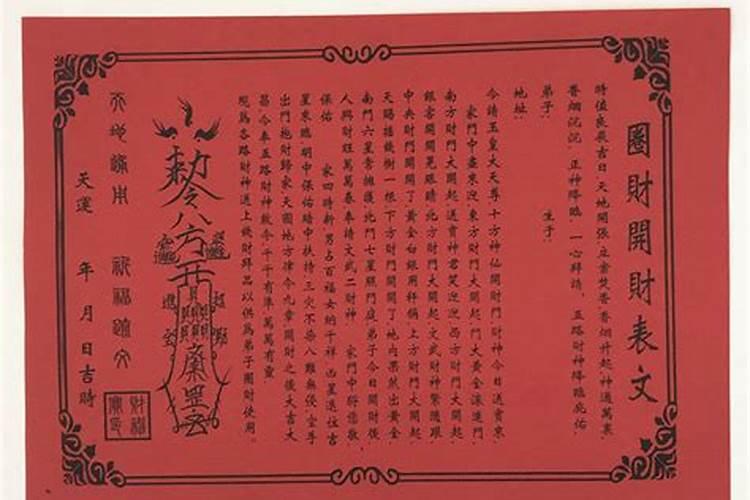 圈財開財表文
時值良辰吉日．天地開張．立案焚香．香烟升起．神通萬案．
香烟沉沉．正神降臨．一心拜請．五路財神降臨庇佑
弟子：生于：
地址：
今請玉皇大天尊十方神仙開財門財神今日送寶來．
家門中盡來迎．東方財門大開起．門大黃金滾進門．
南方財門大開起．送寶神君笑迎迎．西方財門大開起．
銀書開開晃眼睛．北方財門大開起．文武財神緊隨跟．
中央財門開開了．黃金白銀用秤稱．上方財門大開起．
天賜搖錢樹一根．下方財門開開了．地內果然出黃金．
南門六星常擁護．北門七星照門庭．弟子今日開財後．
人興財旺萬萬春．奉請文武二財神．家門中將您敬．
保佑 家四時新．男占百福女納千祥．凶星退位吉
星來臨．明中保佑暗中扶持．三災不染八難無侵．空手
出門抱財歸家．天圓地方律令九章．開財之後大吉大
昌．今奉五路財神敕令．千千有準．萬萬有靈．
現為各路財神送上錢財拜品．以供為弟子圈財使用．
敕令八方
天運 年 月 日吉時